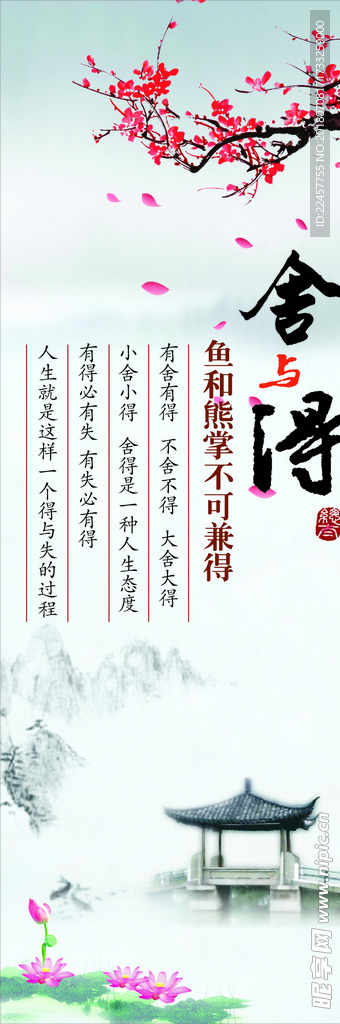 舍与得
鱼和熊掌不可兼得
有舍有得 不舍不得 大舍大得
小舍小得 舍得是一种人生态度
有得必有失 有失必有得
人生就是这样一个得与失的过程
昵享网 www.nipic.cn